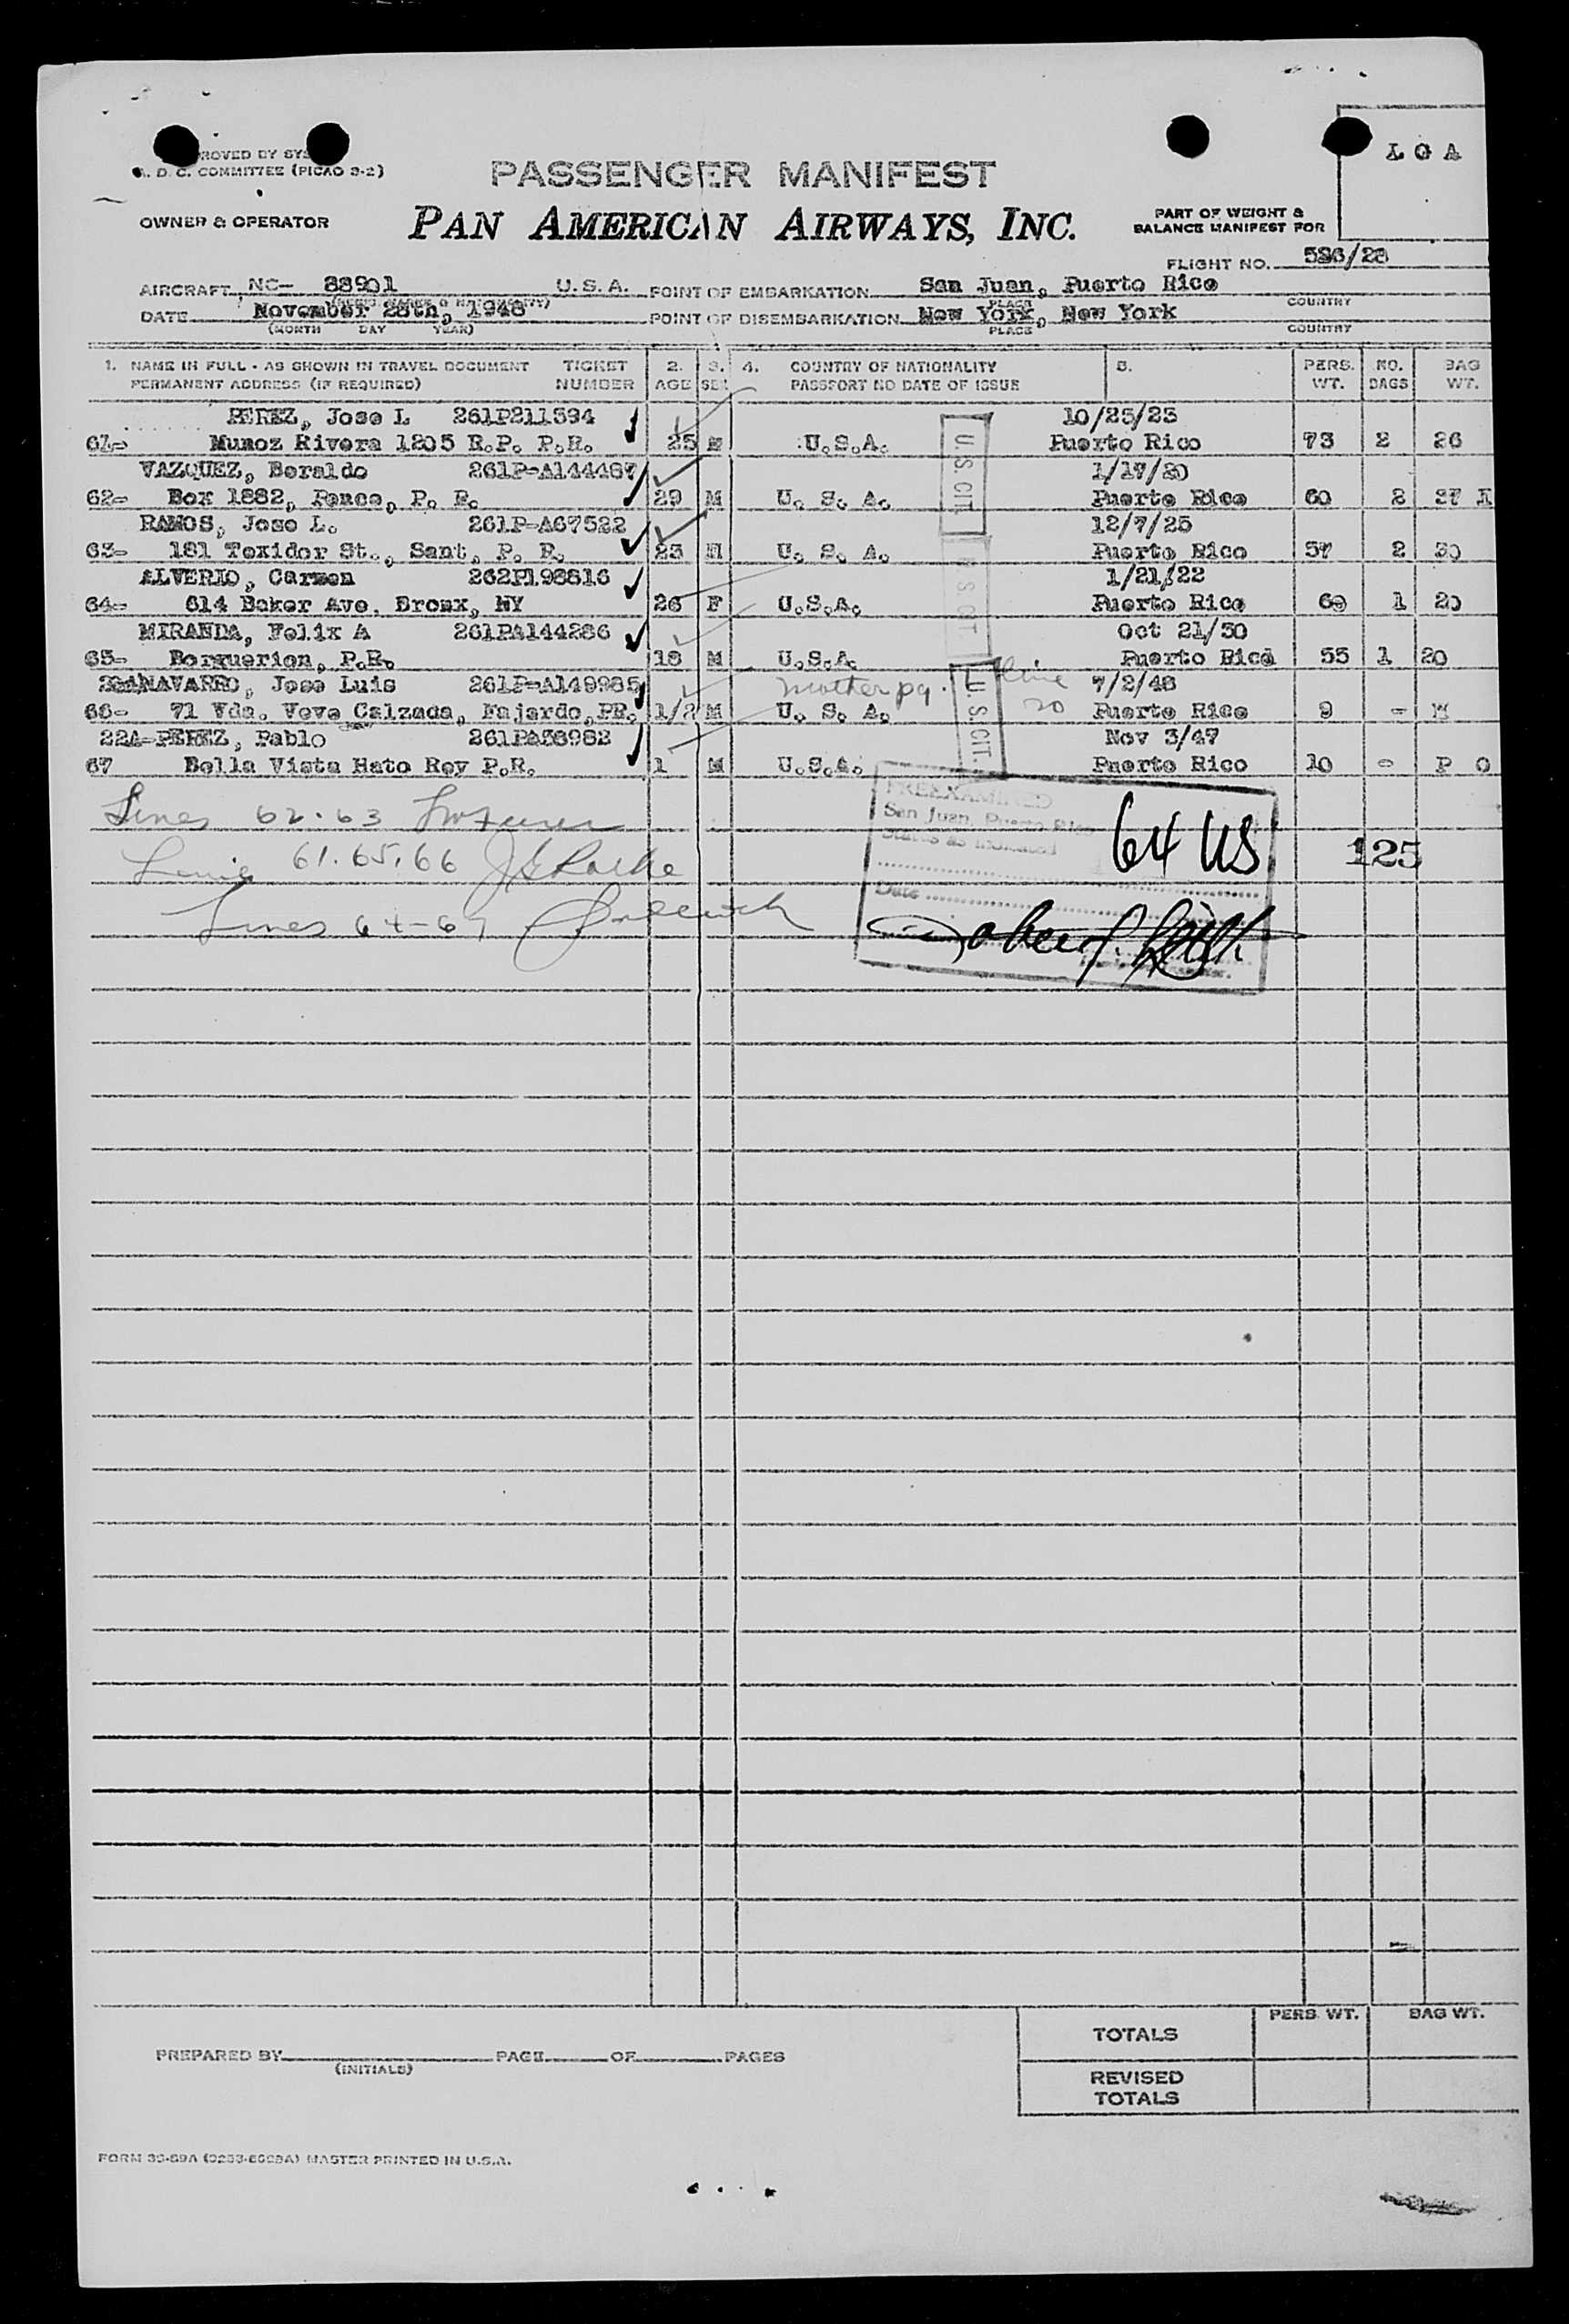 L G A
PASSENGER MANIFEST
A. D. C. COMMITTEE (PICAO 9-2)
OWNER & OPERATOR
PAN AMERICAN AIRWAYS, INC.
PART OF WEIGHT &
BALANCE MANIFEST FOR
FLIGHT NO.
AIRCRAFT NC- 88901 U.S.A. POINT OF EMBARKATION San Juan, Puerto Rico
PLACE COUNTRY
DATE November 28th, 1948 POINT OF DISEMBARKATION New York, New York
(MONTH DAY YEAR) PLACE COUNTRY
1. NAME IN FULL - AS SHOWN IN TRAVEL DOCUMENT TICKET 2. 3. 4. COUNTRY OF NATIONALITY 5. PERS. NO. BAG
PERMANENT ADDRESS (IF REQUIRED) NUMBER AGE SEX PASSPORT NO DATE OF ISSUE WT. BAGS WT.
PEREZ, Jose L 261P211594 10/25/23
61- Munoz Rivera 1205 R.P. P.R. 25 M U.S.A. Puerto Rico 73 2 26
VAZQUEZ, Beraldo 261P-A144487 1/17/20
62- Box 1882, Ponce, P. R. 29 M U. S. A. Puerto Rico 60 2 27
RAMOS, Jose L. 261P-A67522 12/7/25
63- 181 Texidor St., Sant, P. R. 23 M U. S. A. Puerto Rico 57 2 30
ALVERIO, Carmen 262P198816 1/21/22
64- 614 Baker Ave. Bronx, NY 26 F U.S.A. Puerto Rico 69 1 20
MIRANDA, Felix A 261PA144286 Oct 21/30
65- Borquerion, P.R. 18 M U.S.A. Puerto Rico 55 1 20
NAVARRO, Jose Luis 261P-A149985 mother pg. line 20 7/2/48
66- 71 Vda. Veve Calzada, Fajardo, PR. 1/2 M U. S. A. Puerto Rico 9 -
22A-PEREZ, Pablo 261PA56982 Nov 3/47
67 Bella Vista Hato Rey P.R. 1 M U.S.A. Puerto Rico 10 - P O
U.S. CIT.
U.S. CIT.
U.S. CIT.
PREEXAMINED
San Juan, Puerto Rico
Status as indicated
Date
64 US
125
Lines 62-63
Lines 61.65.66
Lines 64-67
PREPARED BY (INITIALS) PAGE OF PAGES
TOTALS PERS. WT. BAG WT.
REVISED
TOTALS
MASTER PRINTED IN U.S.A.